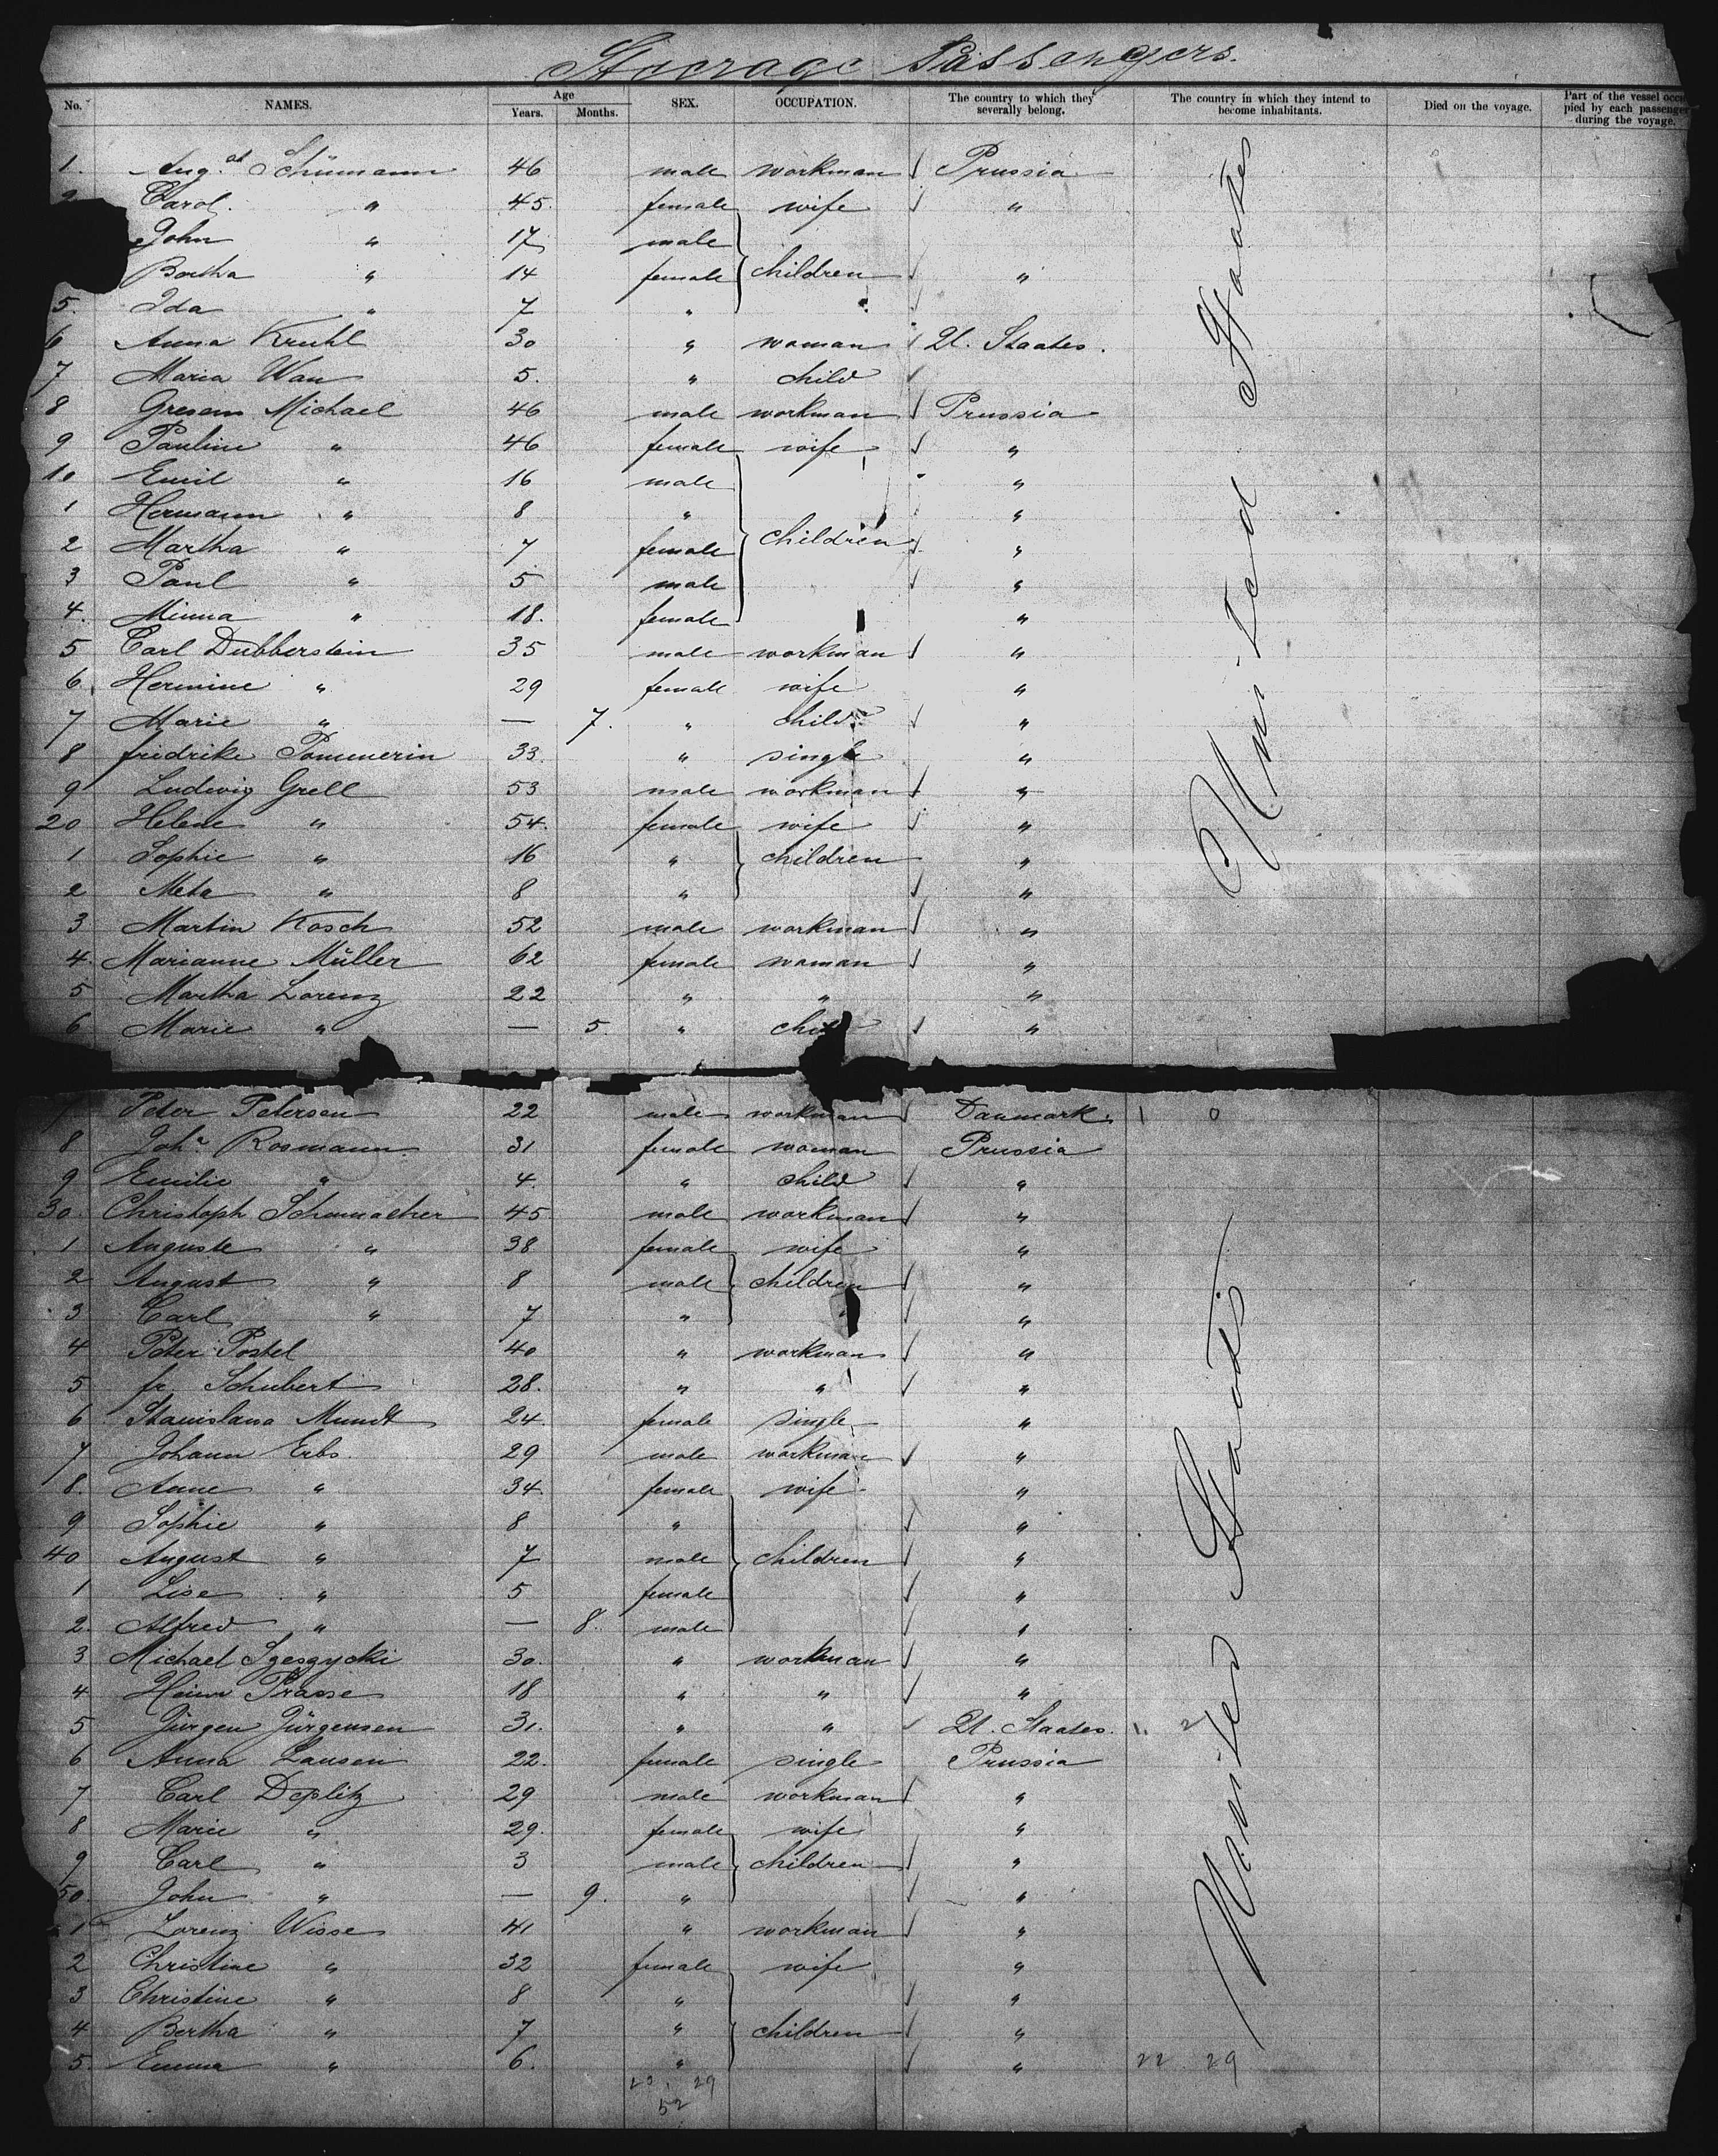 Steerage Passengers.
No. NAMES. Age Years. Months. SEX. OCCUPATION. The country to which they severally belong. The country in which they intend to become inhabitants. Died on the voyage. Part of the vessel occupied by each passenger during the voyage.
1. Aug.st Schümann 46 male workman Prussia
Carol. " 45. female wife "
John " 17 male
Bertha " 14 female children "
5. Ida " 7 "
6 Anna Kruhl 30 " woman U. Staates.
7 Maria Wan 5. " child
8 Gresens Michael 46 male workman Prussia
9 Pauline " 46 female wife "
10 Emil " 16 male "
1 Hermann " 8 " "
2 Martha " 7 female children "
3 Paul " 5 male "
4. Minna " 18. female "
5 Carl Dubberstein 35 male workman "
6. Hermine " 29 female wife "
7 Marie " — 7. " child "
8 fridrike Pommerin 33. " single "
9 Ludwig Grell 53 male workman "
20 Helene " 54. female wife "
1 Sophie " 16 " children "
2 Meta " 8 " "
3 Martin Kosch 52 male workman "
4. Marianne Müller 62 female woman "
5 Martha Lorenz 22 " " "
6 Marie " — 5. " child "
United Staates
7 Peter Petersen 22 male workman Danmark. 1 0
8 Joh.a Rosmann 31 female woman Prussia
9 Emilie " 4. " child "
30. Christoph Schumacher 45 male workman "
1 Auguste " 38 female wife "
2 August " 8 male children "
3 Carl " 7 " "
4 Peter Postel 40 " workman "
5 fr. Schubert 28. " " "
6 Stanislava Mundt 24. female single "
7 Johann Erbs. 29 male workman "
8. Anne " 34. female wife "
9 Sophie " 8 " "
40 August " 7 male children "
1 Lise " 5 female "
2. Alfred " — 8. male "
3 Michael Szeszycki 30. " workman "
4 Heinr Prasse 18 " " "
5 Jürgen Jürgensen 31. " " U. Staates. 1. 2
6 Anna Lausen 22. female single Prussia
7 Carl Deplitz 29 male workman "
8 Marie " 29. female wife "
9 Carl " 3 male children "
50. John " — 9. " "
1 Lorenz Wisse 41 " workman "
2 Christine " 32 female wife "
3 Christine " 8 " "
4 Bertha " 7 " children "
5. Emma " 6. " " 22 29
29
52
United Staates